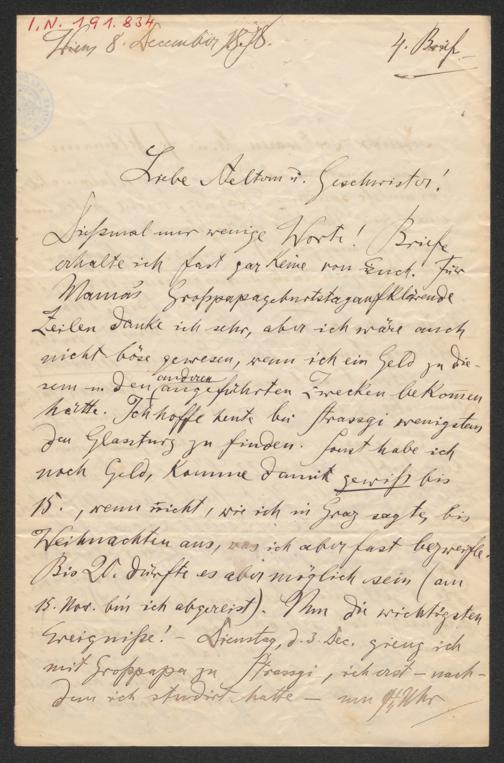 I.N. 191.834
Wien, 8. December 1878.
4. Brief
Liebe Aeltern u. Geschwister!
Dießmal nur wenige Worte! Briefe
erhalte ich fast gar keine von Euch. Für
Mamas Großpapageburtstagaufklärende
Zeilen danke ich sehr, aber ich wäre auch
nicht böse gewesen, wenn ich ein Geld zu die-
sem u. den anderen angeführten Zwecken bekommen
hätte. Ich hoffe heute bei Strassgi wenigstens
den Glassturz zu finden. Sonst habe ich
noch Geld, komme damit gewiß bis
15., wenn nicht, wie ich in Graz sagte, bis
Weihnachten aus, was ich aber fast bezweifle.
Bis 20. dürfte es aber möglich sein (am
15. Nov. bin ich abgereist). Nun die wichtigsten
Ereigniße! – Dienstag, d. 3. Dec. gieng ich
mit Großpapa zu Strassgi, ich erst – nach-
dem ich studirt hatte – um Uhr